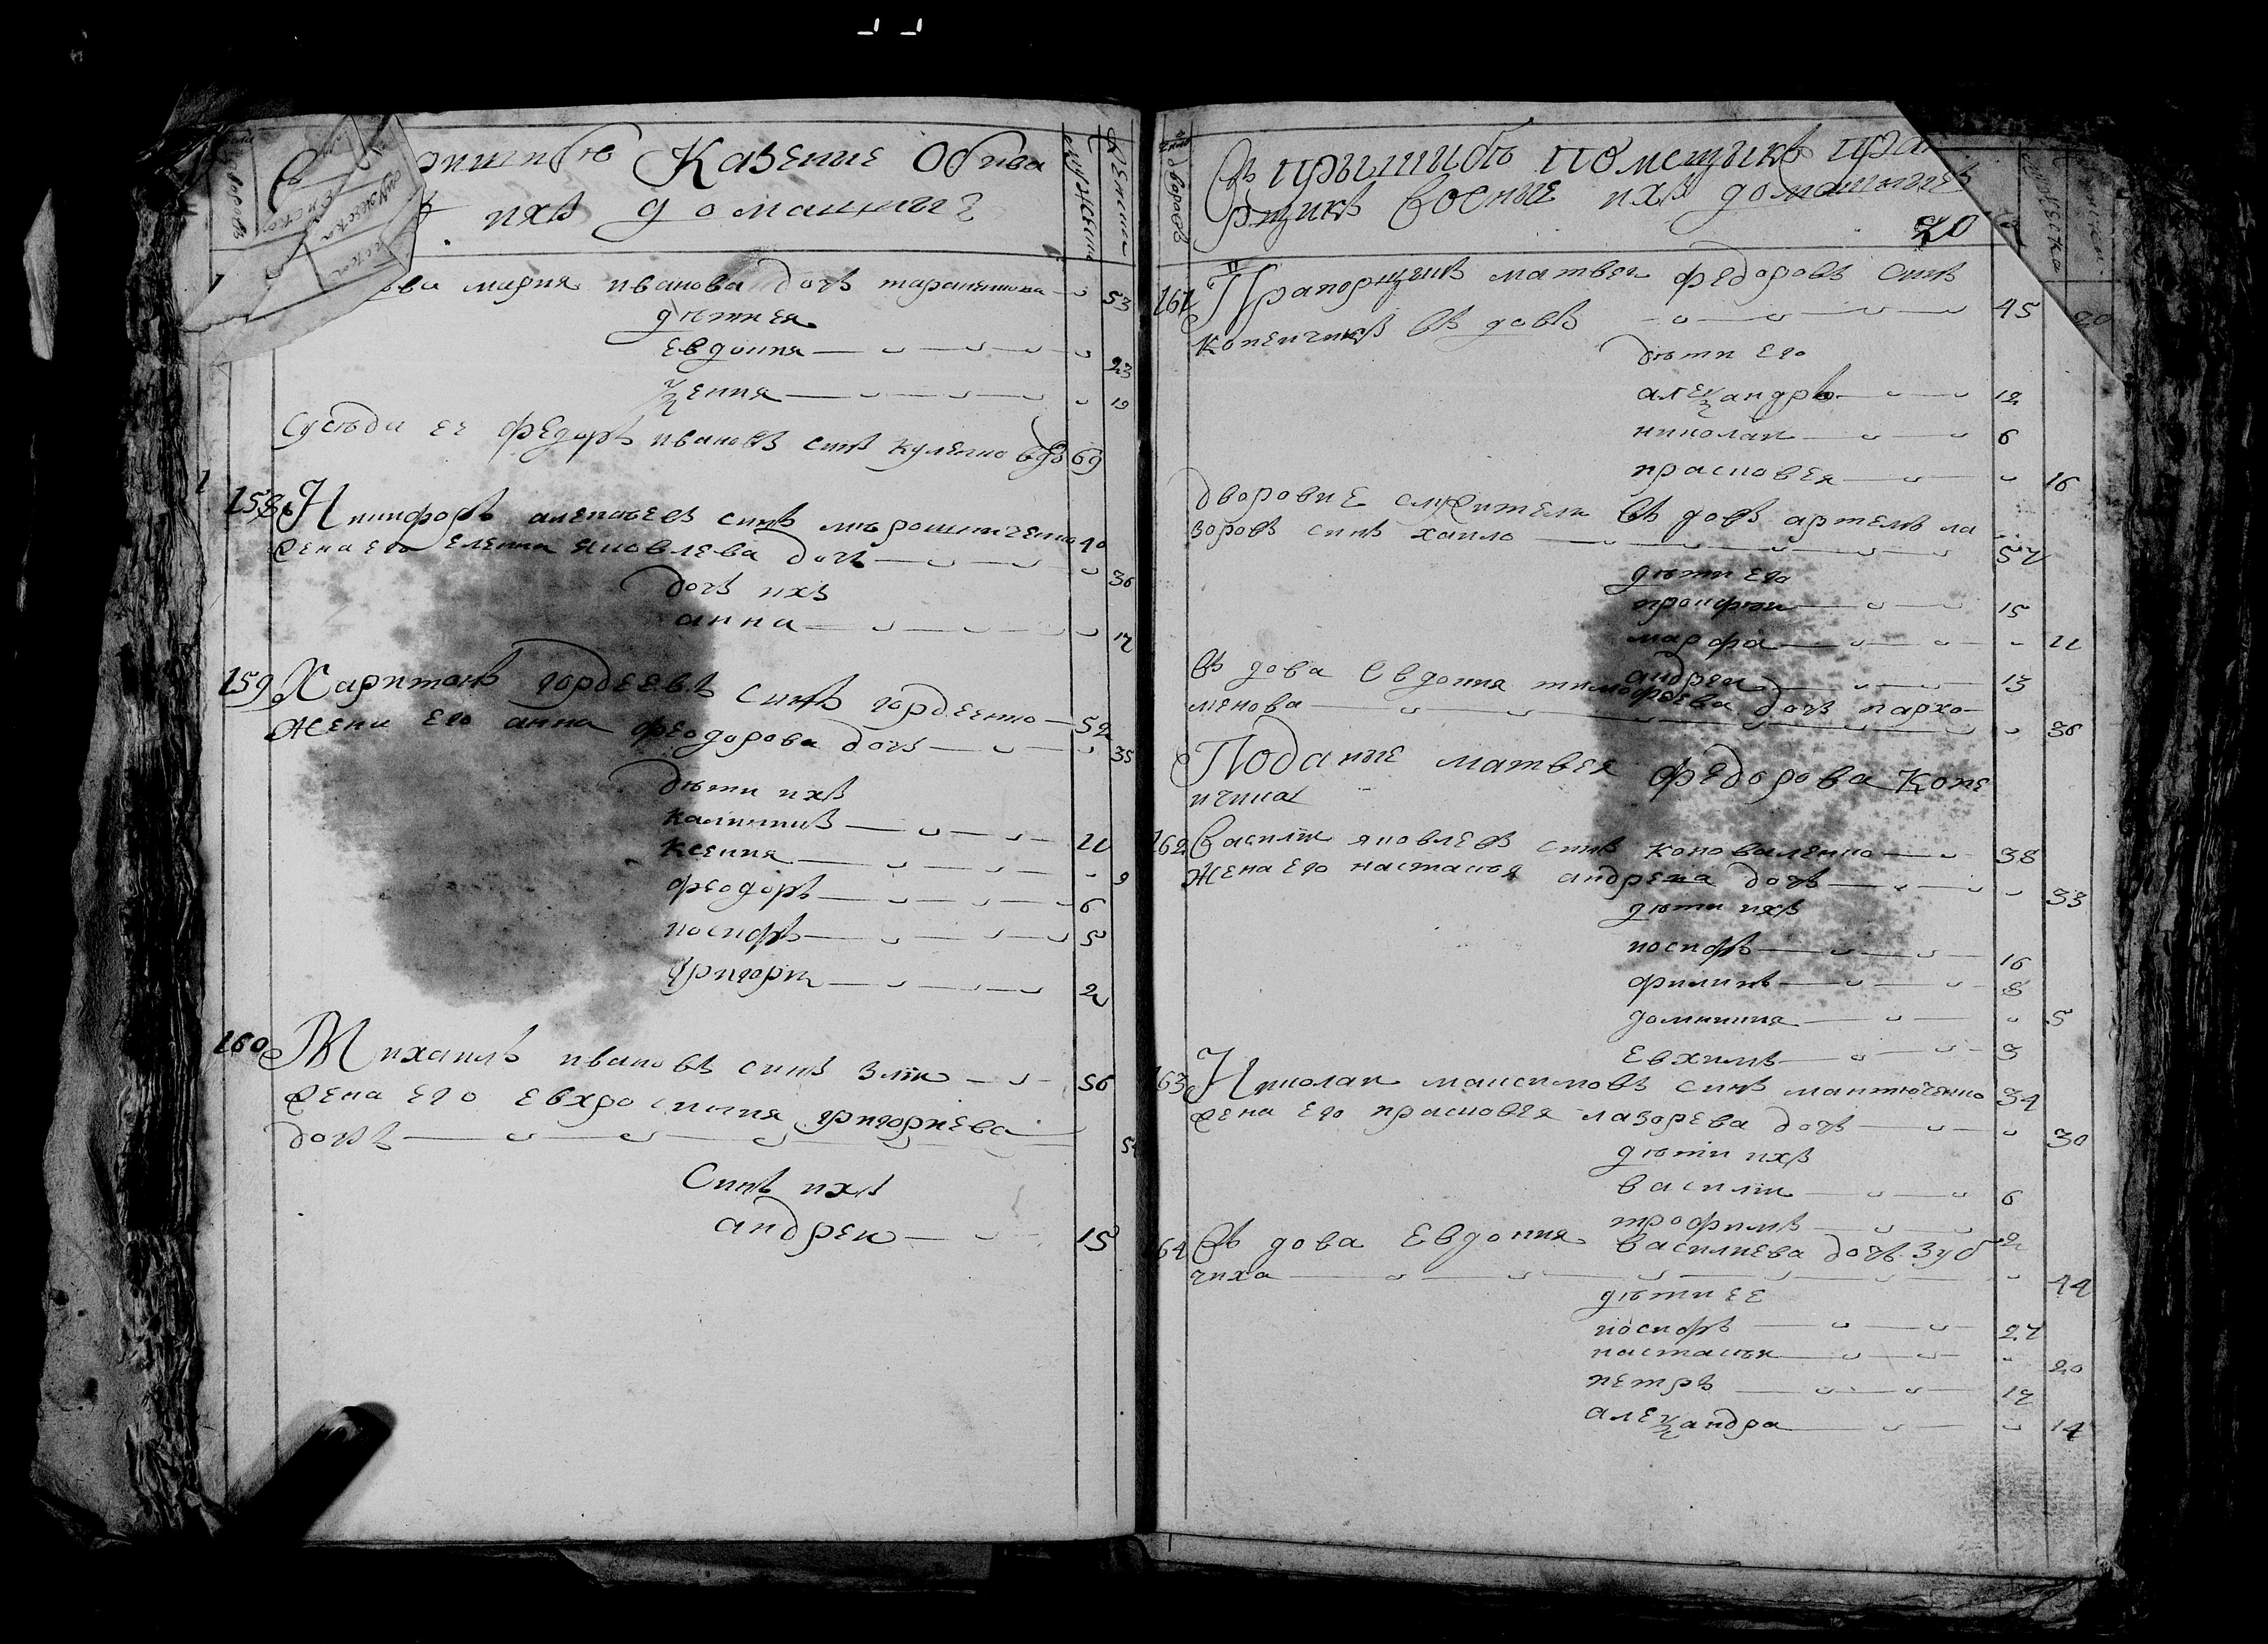 Казение Обива
ихъ домашниı
мария иванова дочъ
дѣти ея
евдокия 23
ѯения 19
Сусѣди ее федоръ ивановъ синъ вдо 69
158 Никифоръ алексѣевъ синъ мирошниченко 40
Жена его елена яковлева дочъ 36
дочъ ихъ
анна 17
159 Харитонъ гордеевъ синъ гордеенко 52
Жена его анна феодорова дочъ 35
дѣти ихъ
калиникъ 11
ксения 9
феодоръ 6
иосифъ 5
григори 2
160 Михаилъ ивановъ синъ змѣи 56
Жена его евхросиния григориева
дочъ
Синъ ихъ
андреи 15
число дворовъ
мужеска
женска
Въ пригшибѣ помещикъ пра
рщикъ воение ихъ домашниıе
20
161 Прапорщикъ матвеи федоровъ синъ
Копеичикъ въ довъ 45
дѣти его
алеѯандръ 12
николаи 6
прасковея 16
дворовие служители въ довъ артемъ ла
зоровъ синъ хаило 57
дѣти его
прокофеи 15
марфа 11
андреи 13
въ дова Евдокия тимофеева дочъ пархо
менова 36
Подание матвея федорова Копе
ичика
162 Василии яковлевъ синъ коноваленко 38
Жена его настасия андреева дочъ 33
дѣти ихъ
иосифъ 16
филипъ 8
домникия 5
Евхимъ 3
163 Николаи максимовъ синъ мантюченко 34
Жена его прасковея лазорева дочъ 30
дѣти ихъ
василии 6
трофимъ 2
164 Въ дова Евдокия василиева дочъ зуб
чиха 44
дѣти ее
иосифъ 27
настасия 20
петръ 17
алеѯандра 14